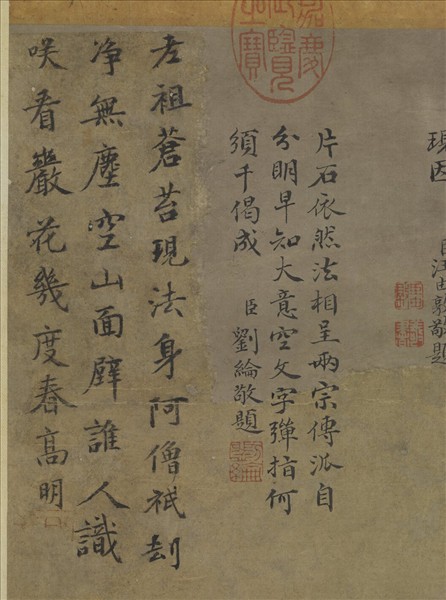 現因 臣汪由敦敬題
嘉慶
御覽
之寶
片石依然法相呈兩宗傳派自
分明早知大意空文字彈指何
須千偈成 臣劉綸敬題
老祖蒼苔現法身阿僧祇劫
净無塵空山面壁誰人識
咲看巖花幾度春高明